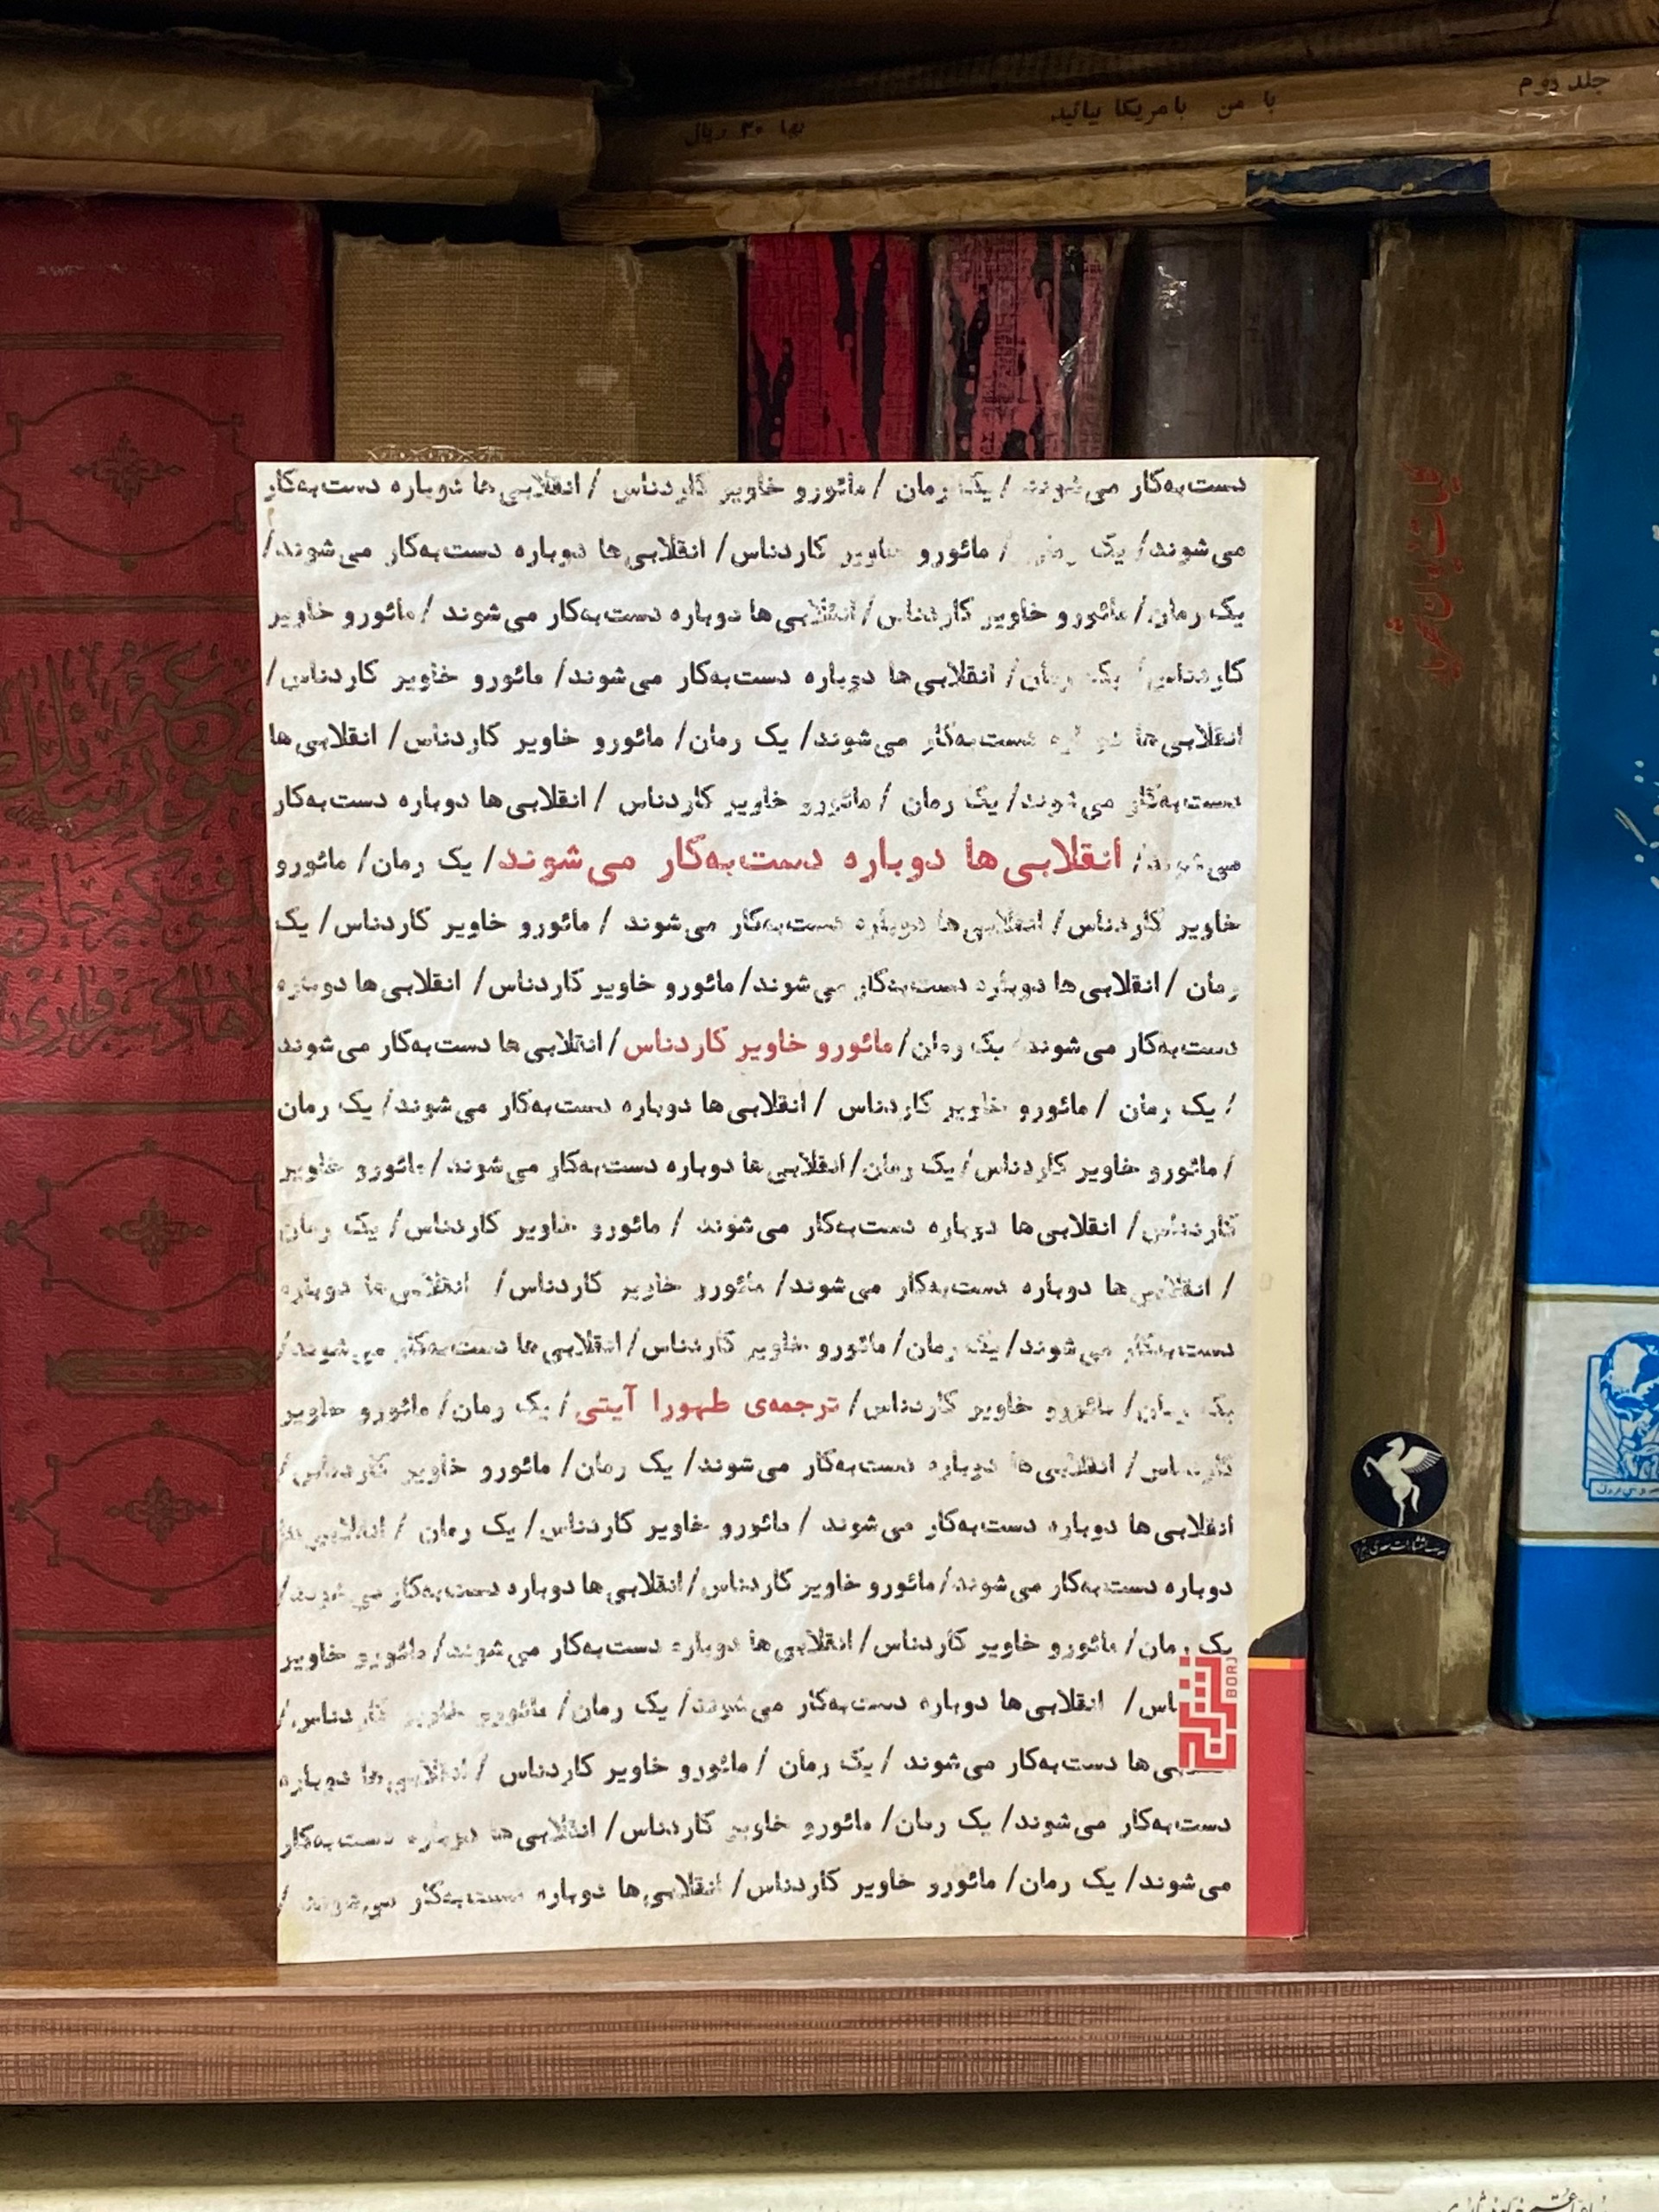 جلد دوم
با من بامریکا بیائید
بها ۳۰ ریال
دست‌به‌کار می‌شوند / یک رمان / مائورو خاویر کاردناس / انقلابی‌ها دوباره دست‌به‌کار
می‌شوند/ یک رمان / مائورو خاویر کاردناس/ انقلابی‌ها دوباره دست‌به‌کار می‌شوند/
یک رمان/ مائورو خاویر کاردناس/ انقلابی‌ها دوباره دست‌به‌کار می‌شوند / مائورو خاویر
کاردناس/ یک رمان/ انقلابی‌ها دوباره دست‌به‌کار می‌شوند/ مائورو خاویر کاردناس/
انقلابی‌ها دوباره دست‌به‌کار می‌شوند/ یک رمان/ مائورو خاویر کاردناس/ انقلابی‌ها
دست‌به‌کار می‌شوند/ یک رمان / مائورو خاویر کاردناس / انقلابی‌ها دوباره دست‌به‌کار
می‌شوند/ انقلابی‌ها دوباره دست‌به‌کار می‌شوند/ یک رمان/ مائورو
خاویر کاردناس/ انقلابی‌ها دوباره دست‌به‌کار می‌شوند / مائورو خاویر کاردناس/ یک
رمان / انقلابی‌ها دوباره دست‌به‌کار می‌شوند/ مائورو خاویر کاردناس/ انقلابی‌ها دوباره
دست‌به‌کار می‌شوند/ یک رمان/ مائورو خاویر کاردناس/ انقلابی‌ها دست‌به‌کار می‌شوند
/ یک رمان / مائورو خاویر کاردناس / انقلابی‌ها دوباره دست‌به‌کار می‌شوند/ یک رمان
/ مائورو خاویر کاردناس/ یک رمان/ انقلابی‌ها دوباره دست‌به‌کار می‌شوند/ مائورو خاویر
کاردناس/ انقلابی‌ها دوباره دست‌به‌کار می‌شوند / مائورو خاویر کاردناس/ یک رمان
/ انقلابی‌ها دوباره دست‌به‌کار می‌شوند/ مائورو خاویر کاردناس/ انقلابی‌ها دوباره
دست‌به‌کار می‌شوند/ یک رمان/ مائورو خاویر کاردناس/ انقلابی‌ها دست‌به‌کار می‌شوند/
یک رمان/ مائورو خاویر کاردناس/ ترجمه‌ی طهورا آیتی/ یک رمان/ مائورو خاویر
کاردناس/ انقلابی‌ها دوباره دست‌به‌کار می‌شوند/ یک رمان/ مائورو خاویر کاردناس/
انقلابی‌ها دوباره دست‌به‌کار می‌شوند / مائورو خاویر کاردناس/ یک رمان / انقلابی‌ها
دوباره دست‌به‌کار می‌شوند/ مائورو خاویر کاردناس/ انقلابی‌ها دوباره دست‌به‌کار می‌شوند/
یک رمان/ مائورو خاویر کاردناس/ انقلابی‌ها دوباره دست‌به‌کار می‌شوند/ مائورو خاویر
ناس/ انقلابی‌ها دوباره دست‌به‌کار می‌شوند/ یک رمان/ مائورو خاویر کاردناس/
بی‌ها دست‌به‌کار می‌شوند / یک رمان / مائورو خاویر کاردناس / انقلابی‌ها دوباره
دست‌به‌کار می‌شوند/ یک رمان/ مائورو خاویر کاردناس/ انقلابی‌ها دوباره دست‌به‌کار
می‌شوند/ یک رمان/ مائورو خاویر کاردناس/ انقلابی‌ها دوباره دست‌به‌کار می‌شوند /
برج
BORJ